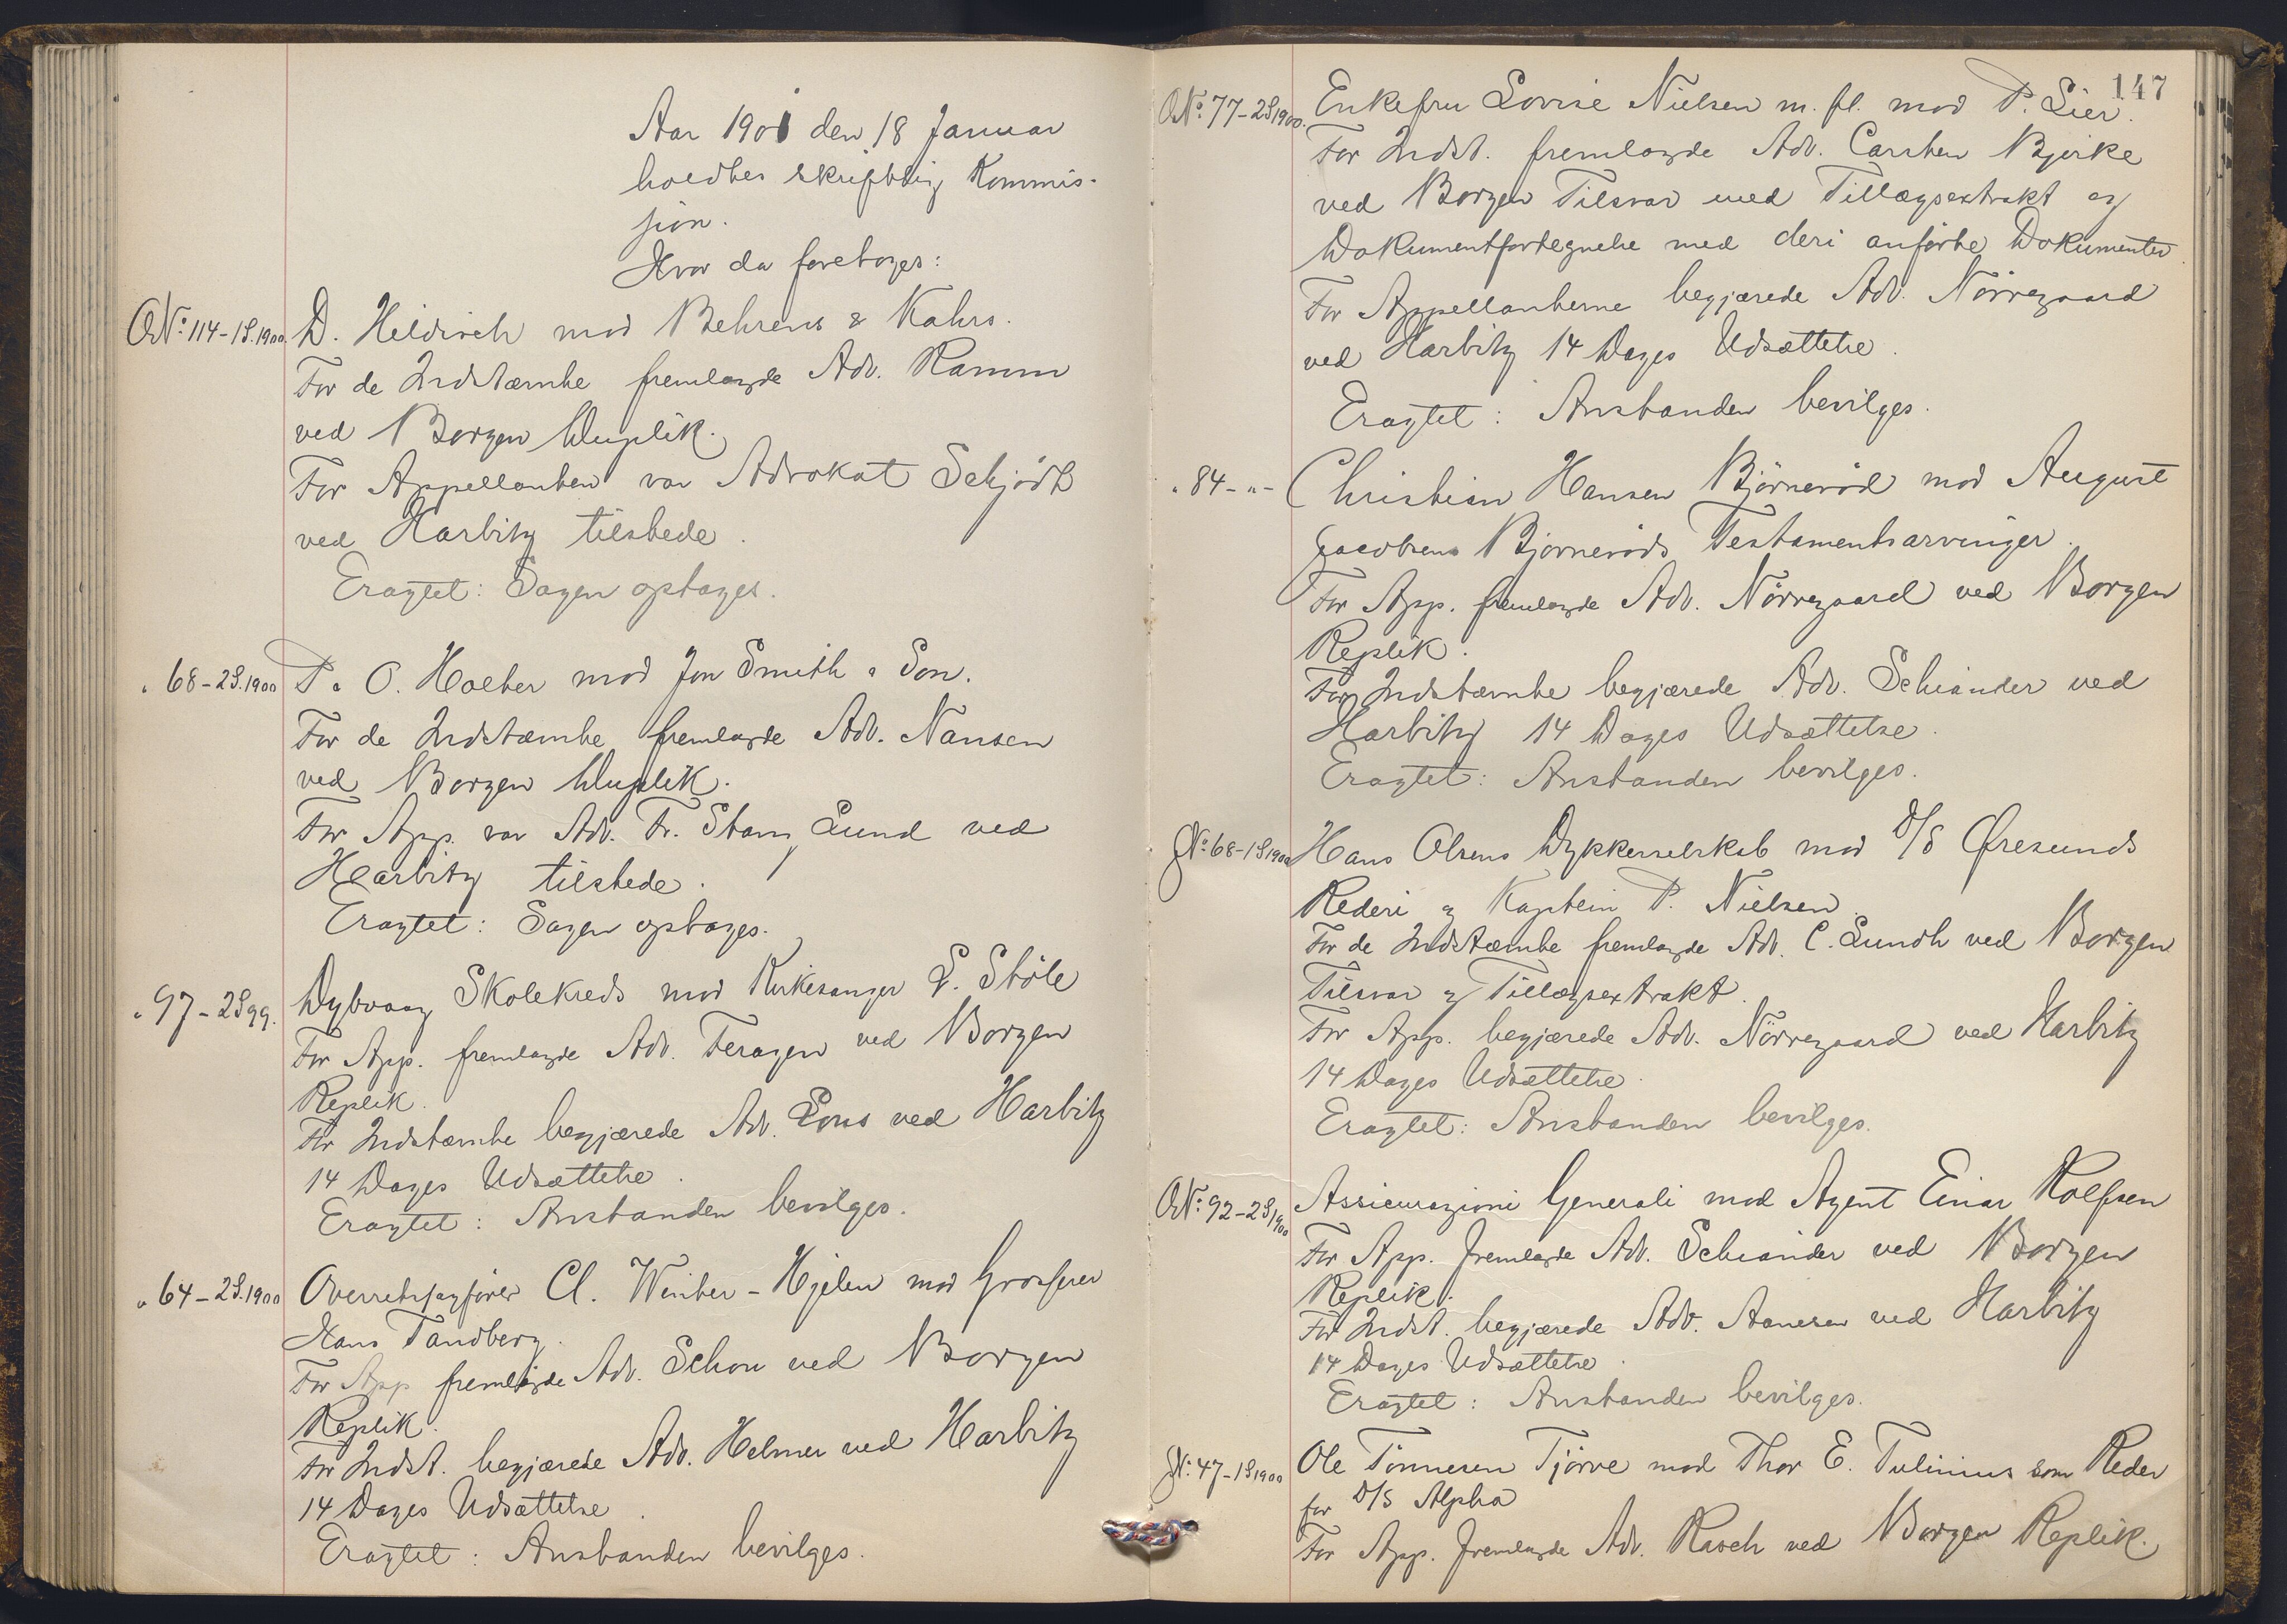 Aar 1901 den 18 Januar
holdtes skriftlig Kommis-
sion.
Hvor da foretoges:
O.N° 114-1S.1900. D. Heldisch mod Behrens & Kahrs.
For de Indstævnte fremlagde Adv. Ramm
ved Borgen Duplik.
For Appellanten var Advokat Schjödt
ved Harbitz tilstede.
Eragtet: Sagen optages.
" 68-2S.1900 P. a. O. Holter mod Jon Smith & Son.
For de Indstævnte fremlagde Adv. Nansen
ved Borgen Duplik.
For App. var Adv. Fr. Stang Lund ved
Harbitz tilstede.
Eragtet: Sagen optages.
" 97-2S99. Dybvaag Skolekreds mod Kirkesanger L. Stöle
For App. fremlagde Adv. Feragen ved Borgen
Replik.
For Indstævnte begjærede Adv. Lous ved Harbitz
14 Dages Udsættelse.
Eragtet: Anstanden bevilges.
" 64-2S.1900 Overretssagförer Cl. Winter-Hjelm mod Grosserer
Hans Tandberg.
For App fremlagde Adv. Schou ved Borgen
Replik.
For Indst. begjærede Adv. Helmer ved Harbitz
14 Dages Udsættelse.
Eragtet: Anstanden bevilges.
147
O.N° 77-2S1900. Enkefru Lovise Nielsen m. fl. mod P. Lier.
For Indst. fremlagde Adv. Carsten Bjerke
ved Borgen Tilsvar med Tillægsextrakt og
Dokumentfortegnelse med deri anförte Dokumenter.
For Appellanterne begjærede Adv. Nörregaard
ved Harbitz 14 Dages Udsættelse.
Eragtet: Anstanden bevilges.
" 84-"- Christian Hansen Björneröd mod August
Jacobsens Björneröds Testamentsarvinger.
For App. fremlagde Adv. Nörregaard ved Borgen
Replik.
For Indstævnte begjærede Adv. Schiander ved
Harbitz 14 Dages Udsættelse.
Eragtet: Anstanden bevilges.
J.N° 68-1S1900 Hans Olsens Dykkerselskab mod D/S Øresunds
Rederi og Kaptein P. Nielsen.
For de Indstævnte fremlagde Adv. C. Lundh ved Borgen
Tilsvar og Tillægsextrakt.
For App. begjærede Adv. Nörregaard ved Harbitz
14 Dages Udsættelse.
Eragtet: Anstanden bevilges.
O.N° 92-2S1900 Assicurazioni Generali mod Agent Einar Rolfsen
For App. fremlagde Adv. Schiander ved Borgen
Replik.
For Indst. begjærede Adv. Aanesen ved Harbitz
14 Dages Udsættelse.
Eragtet: Anstanden bevilges.
J.N° 47-1S1900 Ole Tönnesen Tjörve mod Thor E. Tulinius som Reder
for D/S Alpha
For App. fremlagde Adv. Rasch ved Borgen Replik.